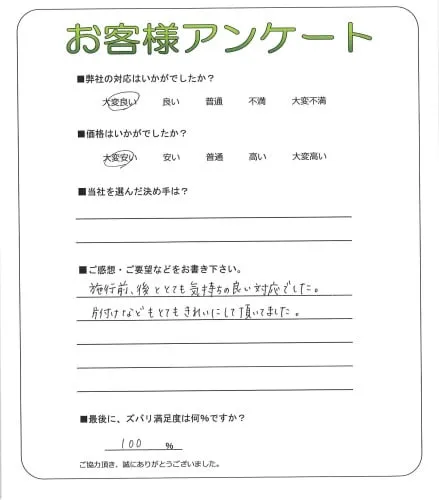 お客様アンケート
■弊社の対応はいかがでしたか?
大変良い 良い 普通 不満 大変不満
■価格はいかがでしたか?
大変安い 安い 普通 高い 大変高い
■当社を選んだ決め手は?
■ご感想・ご要望などをお書き下さい。
施行前、後ととても気持ちの良い対応でした。
片付けなどもとてもきれいにして頂いてました。
■最後に、ズバリ満足度は何%ですか?
100 %
ご協力頂き、誠にありがとうございました。